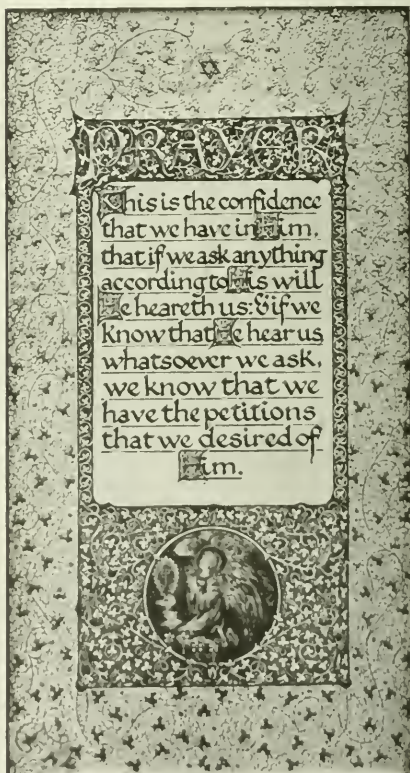 PRAYER
This is the confidence
that we have in Him,
that if we ask anything
according to His will
He heareth us: & if we
know that He hear us
whatsoever we ask,
we know that we
have the petitions
that we desired of
Him.